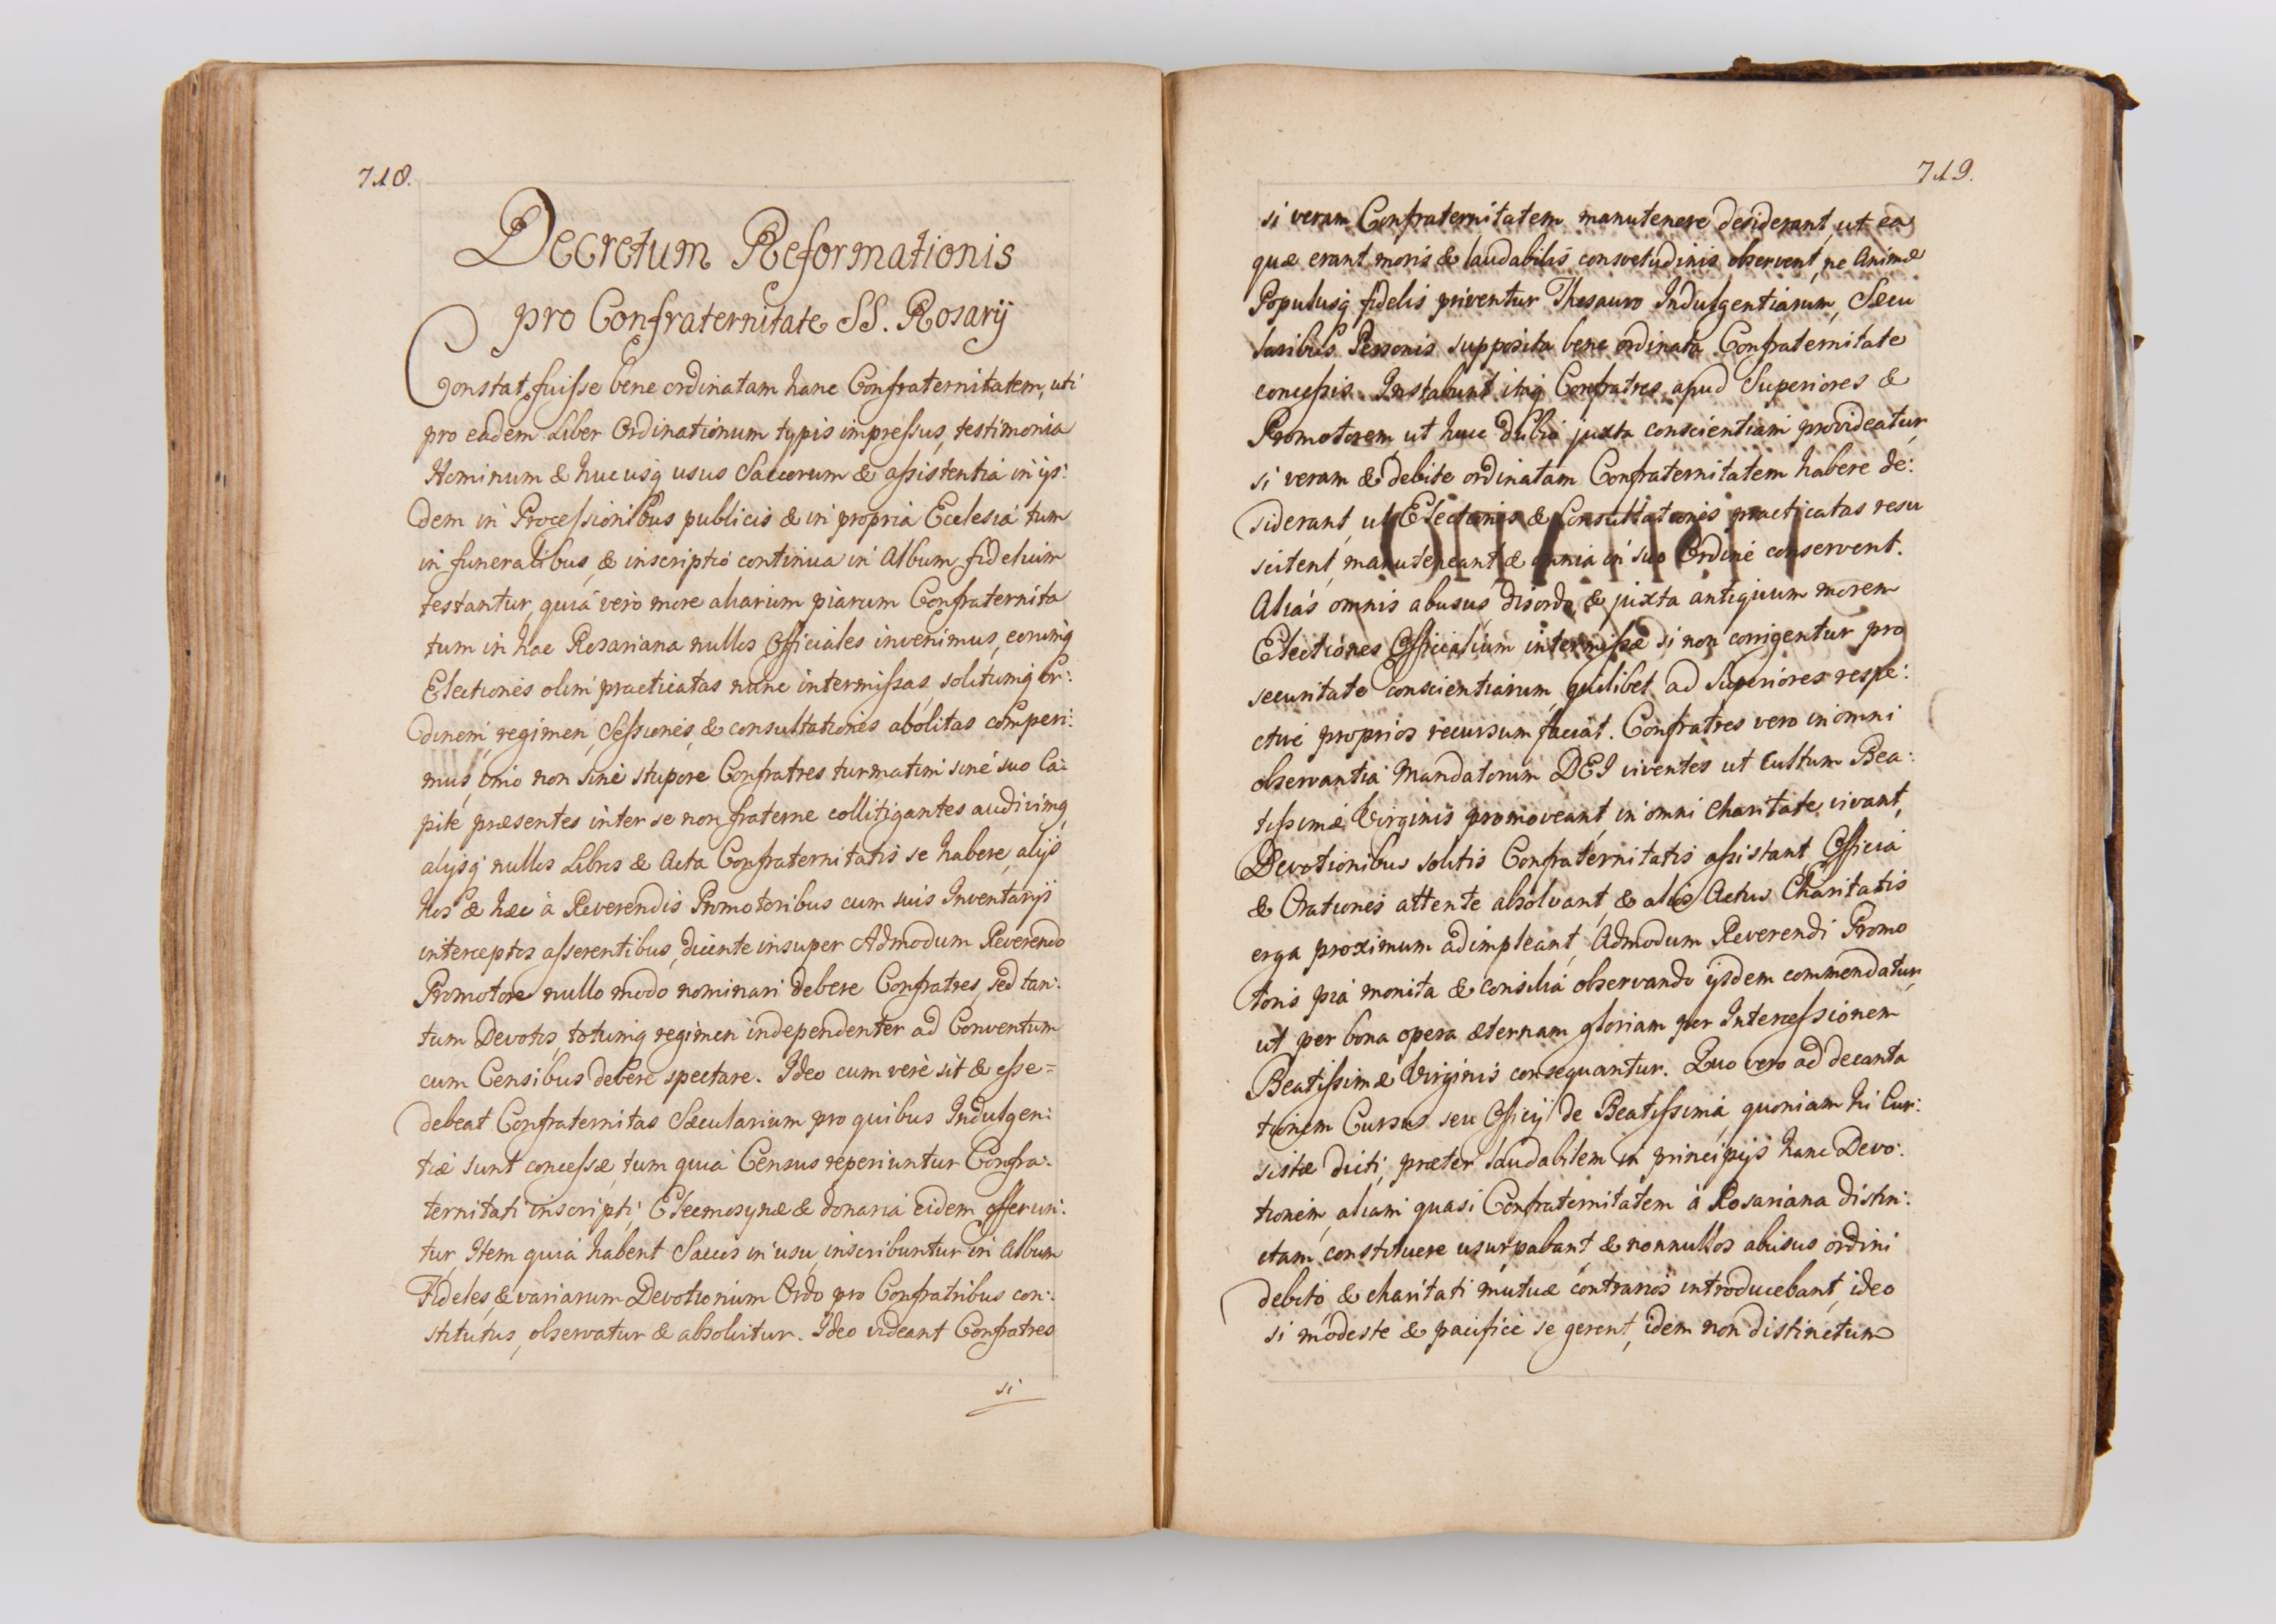 718.
Decretum Reformationis
pro Confraternitate SS. Rosarÿ
Constat fuisse bene ordinatam hanc Confraternitatem, uti
pro eadem Liber Ordinationum typis impressus, testimonia
Hominum & hucusq usus Saccorum & assistentia in ijs:
dem in Processionibus publicis & in propria Ecclesia tum
in funeralibus, & inscriptio continua in Album fidelium
testantur, quia vero more aliarum piarum Confraternita
tum in hac Rosariana nullos Officiales invenimus, eorumq
Electiones olim practicatas nunc intermissas, solitumq Or:
dinem, regimen, Sessiones, & consultationes abolitas comperi:
mus, imo non sine stupore Confratres turmatim sine suo Ca:
pite præsentes inter se non fraterne collitigantes audivimq,
alijsq nullos Libros & Acta Confraternitatis se habere, alijs
hos & hæc à Reverendis Promotoribus cum suis Inventarijs
interceptos asserentibus, dicente insuper Admodum Reverendo
Promotore nullo modo nominari debere Confratres, sed tan:
tum Devotos, totumq regimen independenter ad Conventum
cum Censibus debere spectare. Ideo cum vere sit & esse=
debeat Confraternitas Sæcularium pro quibus Indulgen:
tiæ sunt concessæ, tum quia Census reperiuntur Confra:
ternitati inscripti, Eleemosynæ & donaria eidem offerun:
tur, Item quia habent Saccos in usu, inscribuntur in Album
Fideles, & variarum Devotionum Ordo pro Confratribus con:
stitutus, observatur & absolvitur. Ideo videant Confratres
si
719.
si veram Confraternitatem manutenere desiderant, ut ea
quæ erant moris & laudabilis consvetudinis observent, ne Animæ
Populusq fidelis priventur Thesauro Indulgentiarum, Sæcu
laribus Personis supposita bene ordinata Confraternitate
concessis. Instabunt itaq Confratres apud Superiores &
Promotorem, ut huic dubio juxta conscientiam provideatur,
si veram & debite ordinatam Confraternitatem habere de:
siderant, ut Electiones & Consultationes practicatas resu
scitent, manuteneant & omnia in suo Ordine conservent.
Alias omnis abusus, disordo, & juxta antiquum morem
Electiones Officialium intermissæ si non corrigentur pro
securitate conscientiarum, quilibet ad Superiores respe:
ctive proprios recursum faciat. Confratres vero in omni
observantia Mandatorum DEI viventes ut Cultum Bea:
tissimæ Virginis promoveant, in omni Charitate vivant,
Devotionibus solitis Confraternitatis assistant, Officia
& Orationes attente absolvant, & alios Actus Charitatis
erga proximum adimpleant, Admodum Reverendi Promo
toris pia monita & consilia observando ijsdem commendatur,
ut per bona opera æternam gloriam per Intercessionem
Beatissimæ Virginis consequantur. Quo vero ad decanta
tionem Cursus seu Officij de Beatissima, quoniam hi Cur:
sistæ dicti, præter laudabilem in principijs hanc Devo:
tionem, aliam quasi Confraternitatem à Rosariana distin:
ctam, constituere usurpabant, & nonnullos abusus ordini
debito, & charitati mutuæ contrarios introducebant, ideo
si modeste & pacifice se gerent, idem non distinctum